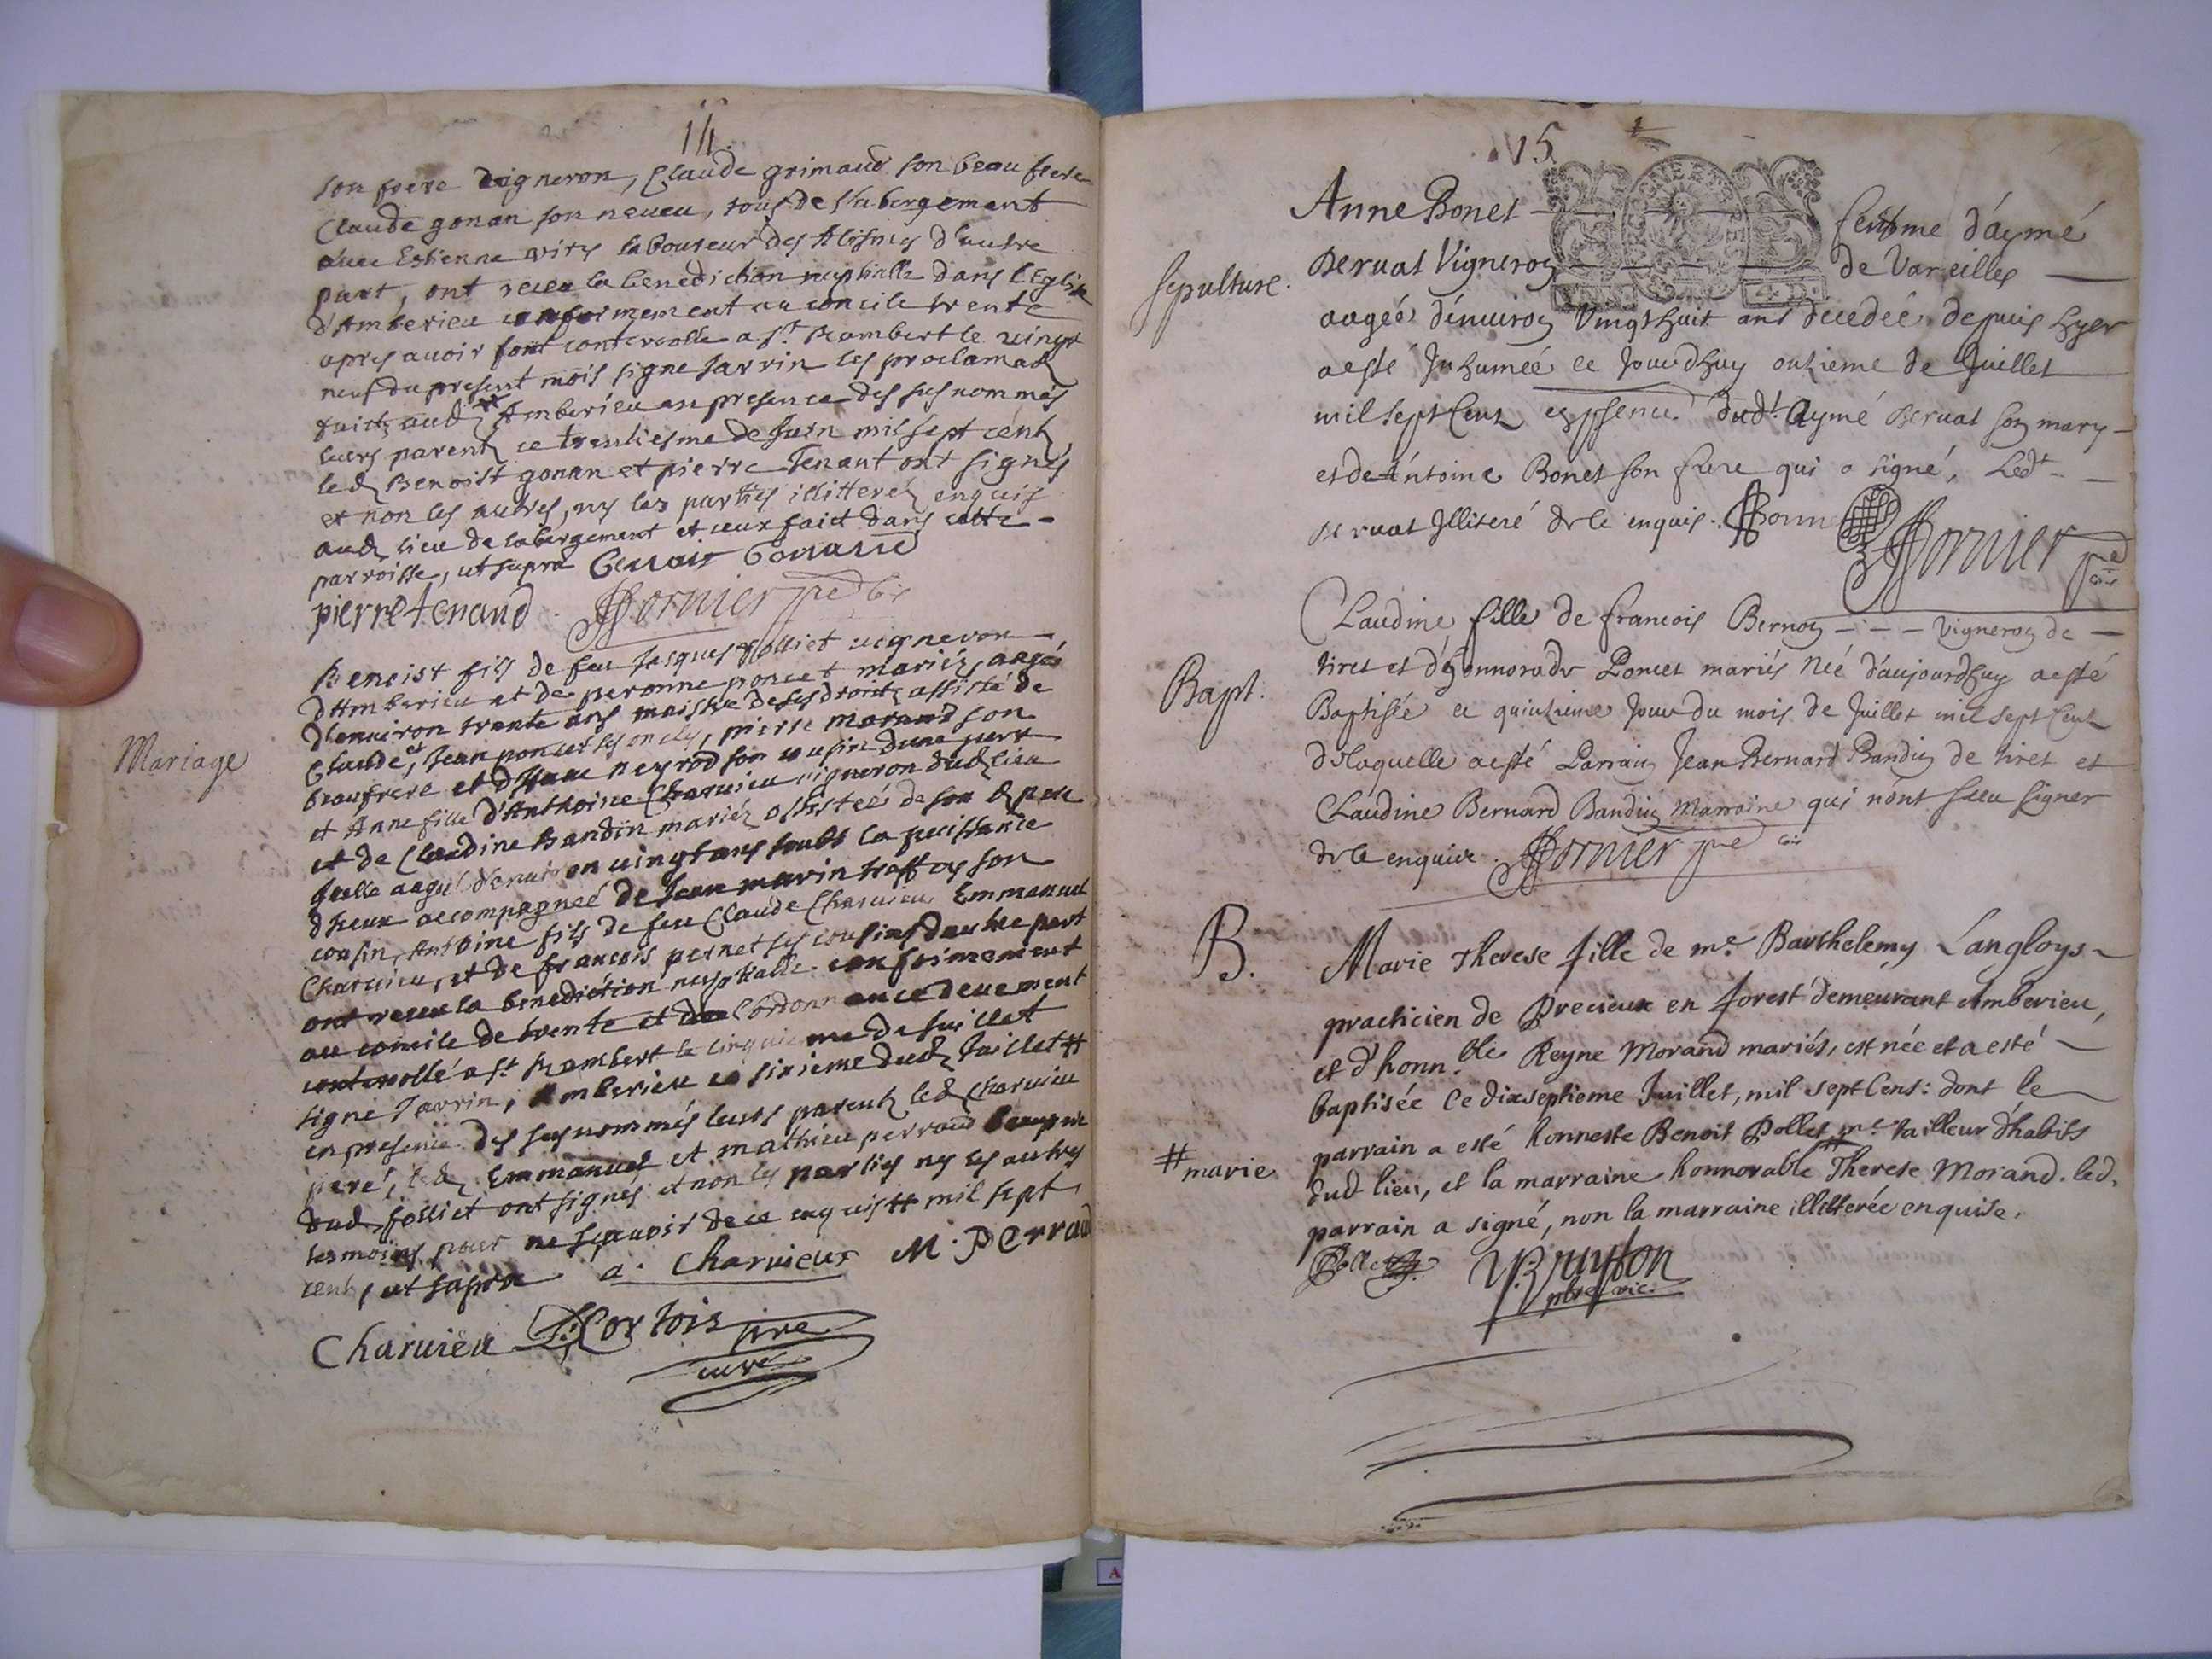 14.
son frere vigneron, Claude grimaud son beau frere
Claude gonan son neveu, tous de l'abergement
avec Estienne vitry laboureur des Alisnes d'autre
part, ont receu la benediction nuptialle dans l'Eglise
d'Amberieu conformement au concile trente
apres avoir font controolle a St. Rambert le vingt
neuf du present mois signe Jarrin les proclamaõ
faictz aud Amberieu en presence des susnommés
leurs parentz ce trentiesme de Juin mil sept centz
led Benoist gonan et pierre Tenant ont signés
et non les autres, ny les parties illitterez enquis
aud lieu de labergement et ceux faict dans cette
parroisse, ut supra Benoist Gonand
pierre tenand Fornier pre
Mariage
Benoist fils de feu Jacques folliet vigneron
d'Amberieu et de peronne poncet mariéz, aagés
d'environ trante ans maistre de ses droitz assisté de
Claude, et Jean poncet ses oncles, pierre morand son
beaufrere et d'Isaac neyrod son cousin dune part
et Anne fille d'Anthoine Charvieu vigneron dud lieu
et de Claudine Bandin mariéz assistée de son d pere
icelle aagée d'environ vingt ans soubs la puissance
d'iceux accompagneé de Jean marin treffoy son
cousin, Antoine fils de feu Claude Charvieu Emmanuel
Charvieu, et de francois pernet ses cousins dautre part
ont receu la benediction nuptialle conformement
au concile de trente et de l'ordonnance deuement
controollé a St Rambert le cinquieme de Juillet
signé Jarrin, Amberieu ce sixieme dud Juillet #
en presence des susnommés leurs parentz led Charvieu
pere, led Emmanuel et mathieu perraud beaupere
dud folliet ont signés et non les parties ny les autres
tesmoins pour ne sçavoir de ce enquis # mil sept
centz, ut supra a. Charvieux M. Perraud
Charvieu Cortois pre
curé
15.
Sepulture.
Anne Bonet femme d'aymé
Beruat Vigneron de Vareilles
aageé d'environ Vingt huit ans decedeé depuis hyer
a esté Inhumeé ce Jourdhuy onzieme de Juillet
mil sept Cent en psence dudt. Aymé Beruat son mary
et de Antoine Bonet son frere qui a signé, Ledt
Beruat Illiteré de ce enquis. Bonne Fornier pre
Bapt.
Claudine fille de francois Bernon vigneron de
tiret et d'honnorade Poncet mariés Neé d'aujourdhuy a esté
Baptisée ce quinzieme Jour du mois de Juillet mil sept Cent
de laquelle a esté Parrain Jean Bernard Bandin de tiret et
Claudine Bernard Bandin Marraine qui n'ont sceu signer
de ce enquis. Fornier pre
B.
Marie Therese fille de me. Barthelemy Langloys
practicien de Precieux en forest demeurant Amberieu,
et d'honn.ble Reyne Morand mariés, est née et a esté
baptisée ce dixseptieme Juillet, mil sept Cens: dont le
parrain a esté honneste Benoit Pollet me. tailleur d'habits
dud lieu, et la marraine honnorable # Therese Morand. led.
# marie
parrain a signé, non la marraine illitterée enquise.
Pollet Bruyson
pbre vic.